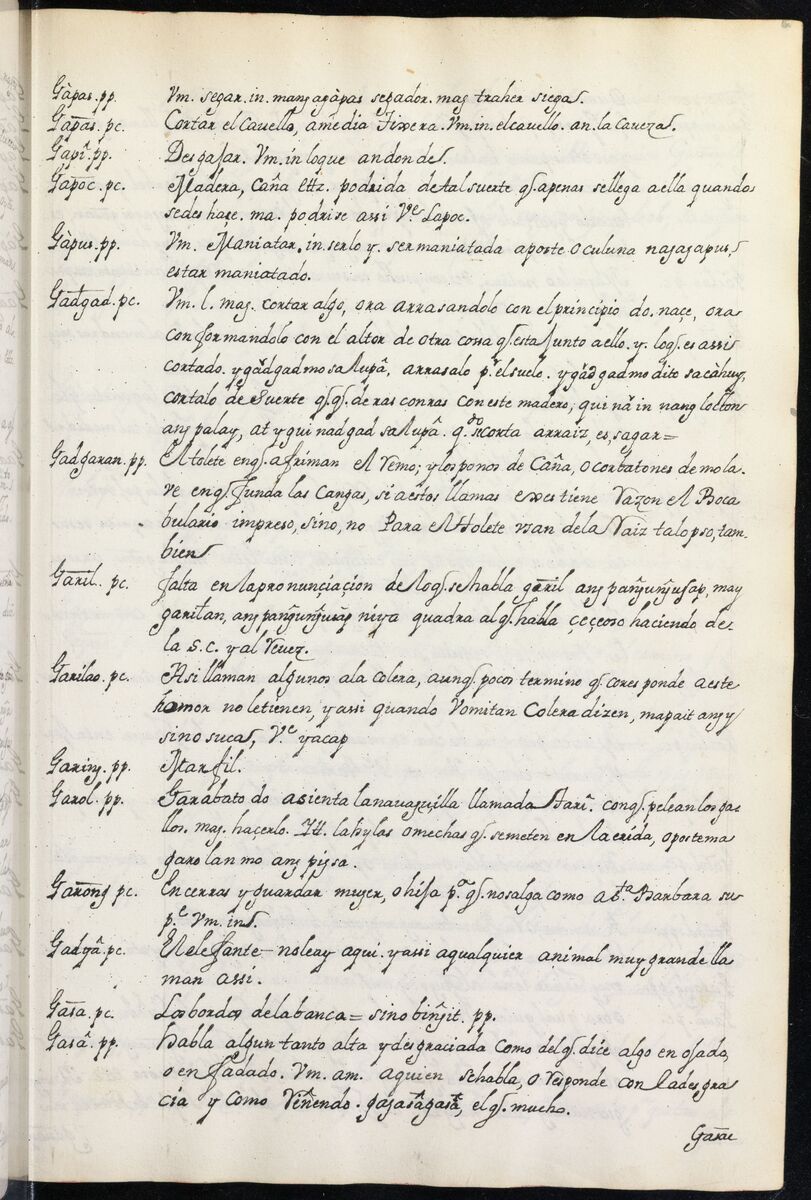 Gàpas. pp. Vm. segar. in. mangagàpas segador. mag traher siega.
Gapas. pc. Cortar el Cavello, amedia Tixera. Vm. in. el cavello. an. la Caveza.
Gapî. pp. Desgajar. Vm. in loque an donde.
Gapoc. pc. Madera, Caña ettz. podrida detal suerte q̃. apenas sellega aella quando
sedeshaçe. ma. podrirse assi Vᵉ Lapoc.
Gàpus. pp. Vm. Maniatar. in. serlo y. ser maniatada aposte o culuna nagagapus,
estar maniatado.
Gadgad. pc. Vm. l. mag. cortar algo, ora arrasandolo con el principio do. naçe, ora
conformandolo con el altor de otra cossa q̃. esta junto aello. y. loq̃. es assi
cortado. ygadgad mo sa lupâ, arrasalo pʳ. el suelo. ygadgad mo dito sa càhuy,
cortalo de suerte q̃. q̃. de ras con ras con este madero,
ang palay, at ygui nadgad sa lupâ. q.ᵈᵒ secorta arraiz, es, sagar=
Gadgaran. pp. El tolete enq̃. afriman el remo; y los ponos de Caña, o corbatones de mola.
ve enq̃. funda las Cangas, si aestos llamas exes tiene razon el Boca
bulario impreso, sino, no Para el tolete usan dela raiz talopso, tam-
bien
Garil. pc. falta en la pronunçiaçion de loq̃. sehabla garil ang pangungusap, may
garitan, ang pangungusap niya quadra al q̃. habla çeçeoso haciendo de-
la s. c. y al reves.
Garilao. pc. Asi llaman algunos ala colera, aunq̃. pocos termino q̃. coresponde aeste
homor no letienen, y assi quando Vomitan Colera dizen, mapait ang y
sino suca, V.ᵉ yacap
Garing. pp. Marfil.
Garol. pp. Garabato do asienta la navaguilla llamada tari. conq̃. pelean los ga-
llos. mag. haçerlo. Itt. las hylas o mechas q̃. semeten en la erida, o postema
garolan mo ang pigsa.
Garong pc. Encerrar y guardar muger, o hija p.ᵃ q̃. no salga como a S.ᵗᵃ Barbara su
p.ᵉ Vm. in.
Gadyâ. pc. El elefante no leay aqui. y assi aqualquier animal muy grande lla
man assi.
Gasa. pc. Los bordos dela banca = sino bingit. pp.
Gasâ. pp. habla algun tanto alta y desgraciada como del q̃. dice algo en ojado,
o en fadado. Vm. am. aquien sehabla, o responde con la desgra
cia y como riñendo. gagasâgasâ, el q̃. mucho.
Gasac